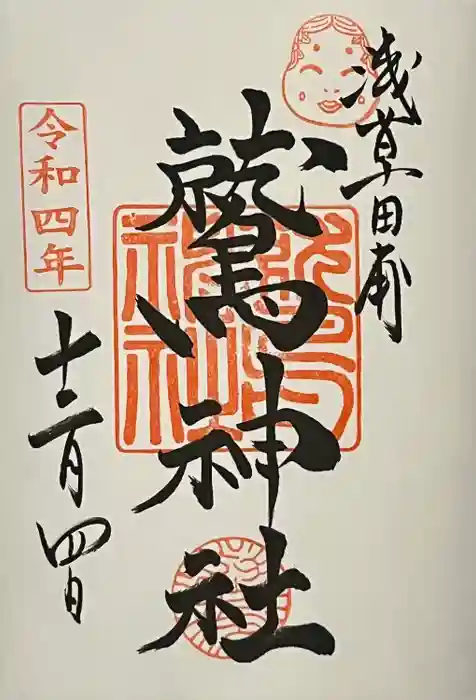 浅草田甫
鷲神社
令和四年
十二月四日